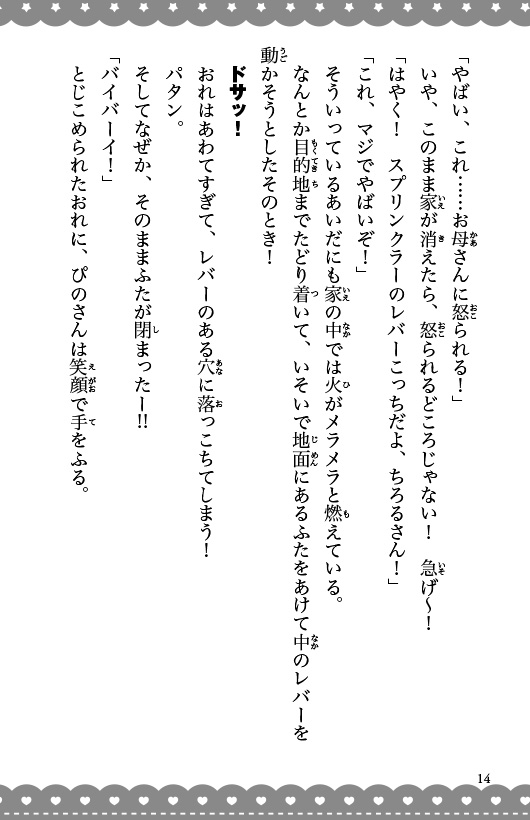 「やばい、これ……お母さんに怒られる！」
いや、このまま家が消えたら、怒られるどころじゃない！　急げ〜！
「はやく！　スプリンクラーのレバーこっちだよ、ちろるさん！」
「これ、マジでやばいぞ！」
そういっているあいだにも家の中では火がメラメラと燃えている。
なんとか目的地までたどり着いて、いそいで地面にあるふたをあけて中のレバーを
動かそうとしたそのとき！
ドサッ！
おれはあわてすぎて、レバーのある穴に落っこちてしまう！
パタン。
そしてなぜか、そのままふたが閉まったー!!
「バイバーイ！」
とじこめられたおれに、ぴのさんは笑顔で手をふる。
14